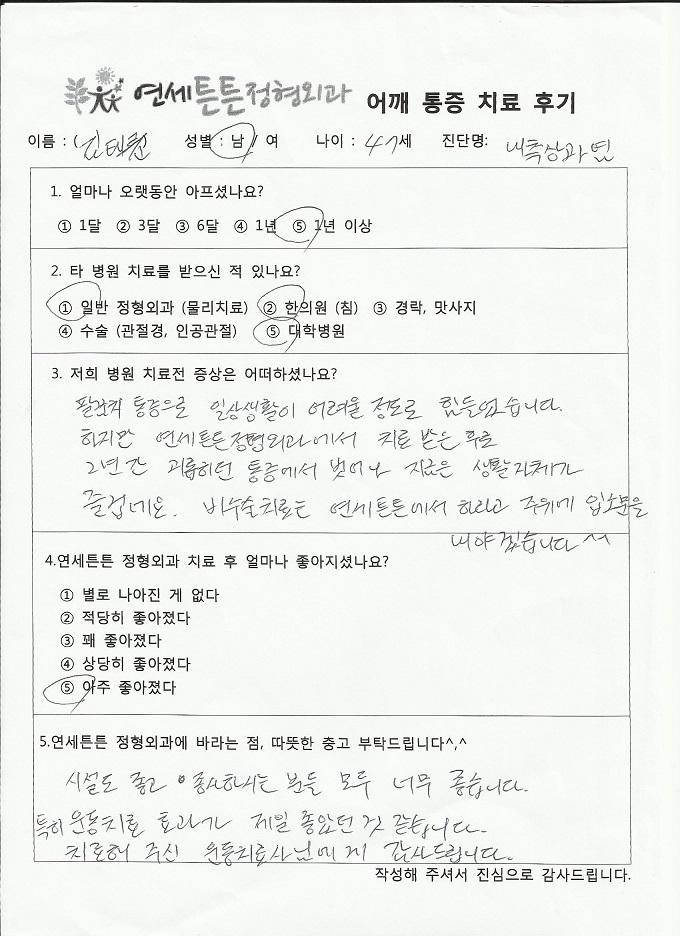 연세튼튼정형외과 어깨 통증 치료 후기
이름 : 성별 : 남 / 여 나이 : 47세 진단명: 내측상과염
1. 얼마나 오랫동안 아프셨나요?
① 1달 ② 3달 ③ 6달 ④ 1년 ⑤ 1년 이상
2. 타 병원 치료를 받으신 적 있나요?
① 일반 정형외과 (물리치료) ② 한의원 (침) ③ 경락, 맛사지
④ 수술 (관절경, 인공관절) ⑤ 대학병원
3. 저희 병원 치료전 증상은 어떠하셨나요?
팔관절 통증으로 일상생활이 어려울 정도로 힘들었습니다.
하지만 연세튼튼정형외과에서 치료 받은 후로
2년간 괴롭히던 통증에서 벗어나 지금은 생활자체가
즐겁네요. 비수술치료는 연세튼튼에서 하라고 주위에 입소문을
내야 겠습니다 ^^
4.연세튼튼 정형외과 치료 후 얼마나 좋아지셨나요?
① 별로 나아진 게 없다
② 적당히 좋아졌다
③ 꽤 좋아졌다
④ 상당히 좋아졌다
⑤ 아주 좋아졌다
5.연세튼튼 정형외과에 바라는 점, 따뜻한 충고 부탁드립니다^,^
시설도 좋고 종사하시는 분들 모두 너무 좋습니다.
특히 운동치료 효과가 제일 좋았던 것 같습니다.
치료해 주신 운동치료사님에게 감사드립니다.
작성해 주셔서 진심으로 감사드립니다.